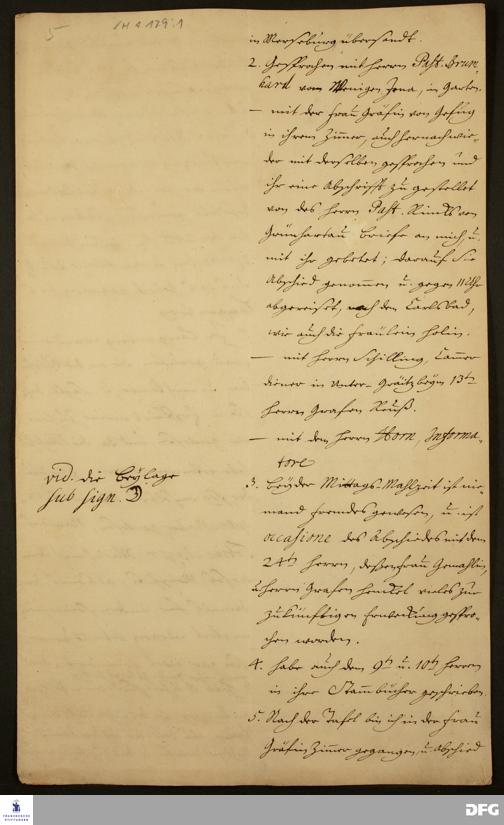 5
1H 4 129:1
in Merseburg übersandt.
2. Gesprochen mit Herrn Past. Brun-
kard vom Wenigen Jena, im Garten.
— mit der Frau Gräfin von Gefug
in ihrem Zimmer, auch hernach wie-
der mit derselben gesprochen und
ihr eine Abschrifft zu gestellet
von des Herrn Past. von
Grünhartau Briefe an mich, u.
mit ihr gebetet; darauf Sie
Abschied genommen u. gegen 11 Uhr
abgereiset, nach dem Carlsbad,
wie auch die Fräulein Holin.
— mit Herrn Schilling, Cammer
diener in Unter-Gräitz beym 13ten
Herrn Grafen Reuß.
— mit dem Herrn Horn, Informa-
tore
vid. die Beylage
sub sign. D
3. Bey der Mittags-Mahlzeit ist nie-
mand fremdes gewesen, u. ist
occasione des Abschiedes mit dem
24ten Herrn, deßen Frau Gemahlin,
u. Herrn Grafen Henckel vieles zur
zukünftigen Erweckung gespro-
chen worden.
4. Habe auch dem 9ten u. 10ten Herrn
in ihre Stammbücher geschrieben.
5. Nach der Tafel bin ich in der Frau
Gräfin Zimmer gegangen, u. Abschied
FRANCKESCHE STIFTUNGEN
DFG